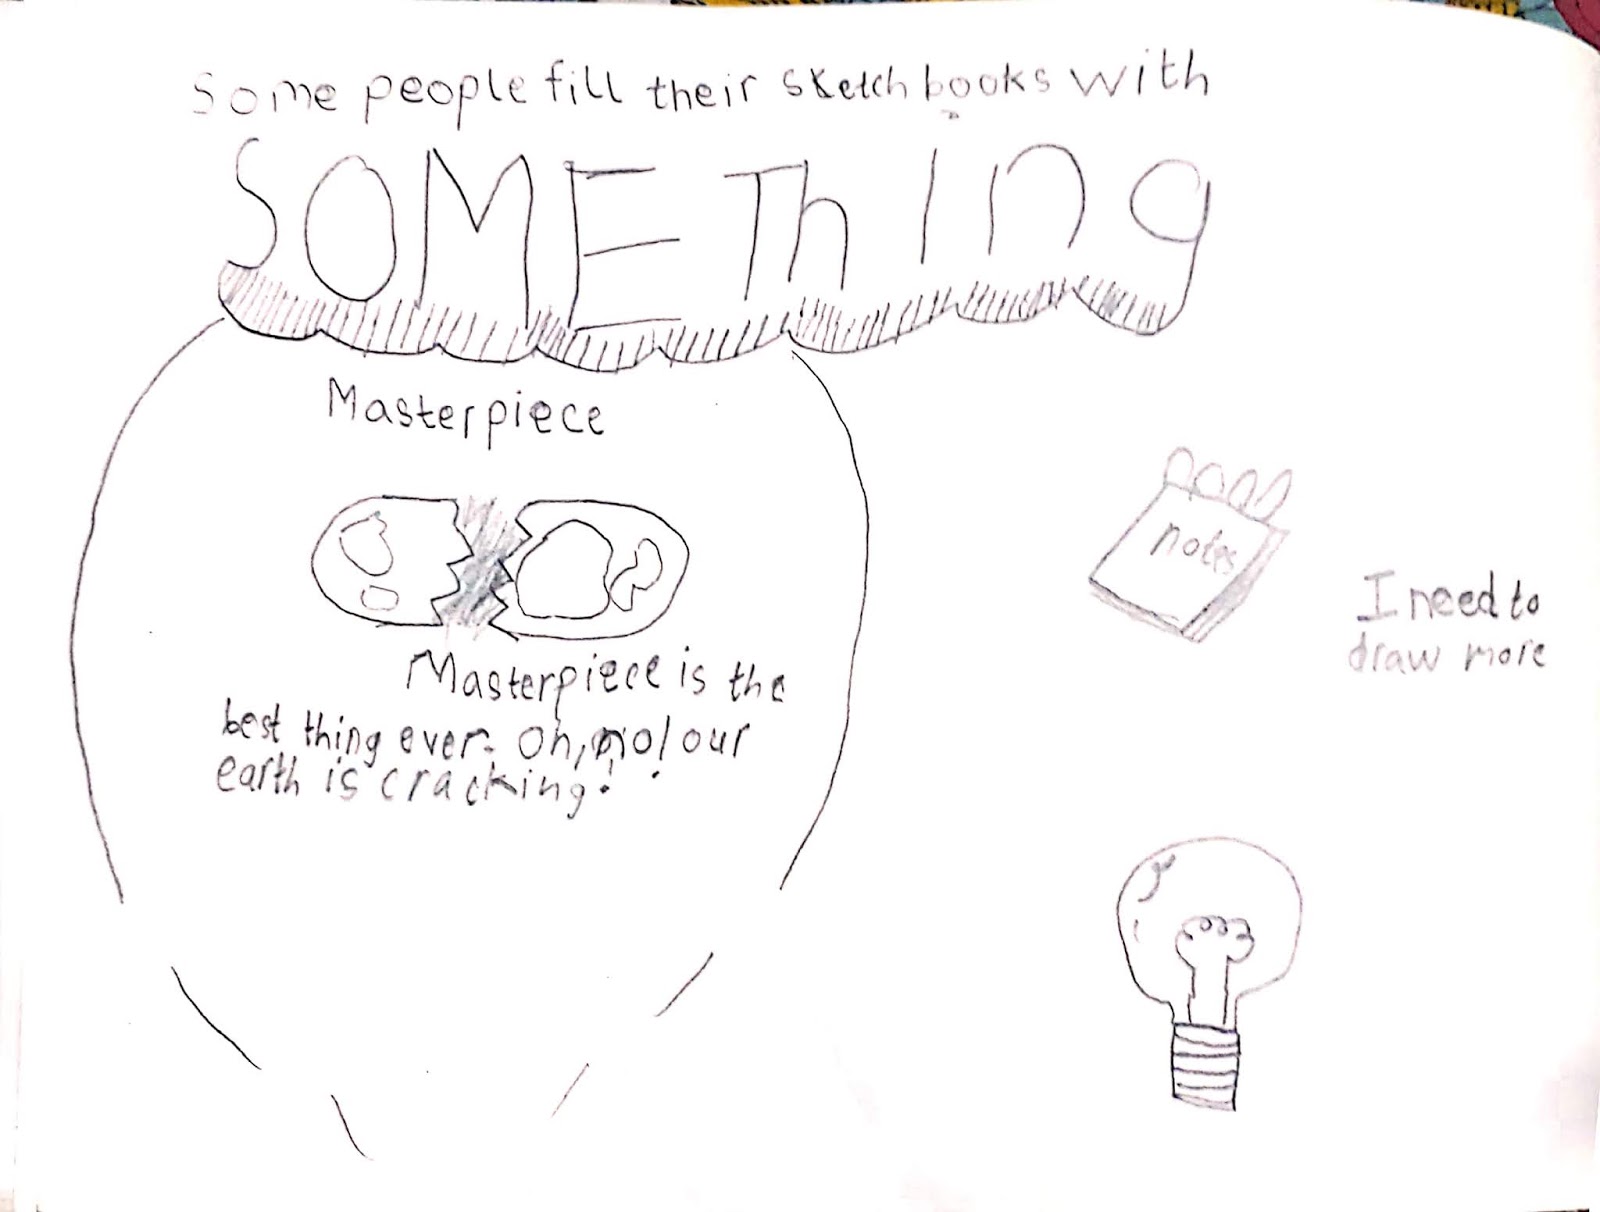 Some people fill their sketchbooks with
SOMEThing
Masterpiece
notes
I need to
draw more
Masterpiece is the
best thing ever. Oh, no! our
earth is cracking!